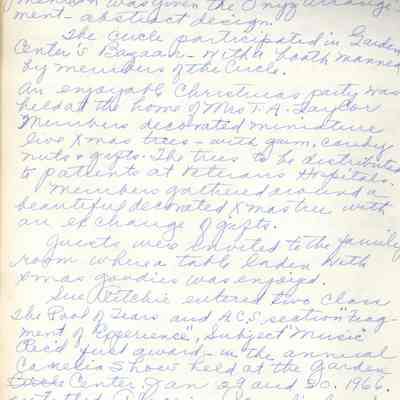 mention was given the Onyx arrange-
ment - abstract design.
The Circle participated in Garden
Center's Bazaar - with a booth manned
by members of the Circle.
An enjoyable Christmas party was
held at the home of Mrs T. A. Taylor
Members decorated miniature
live Xmas trees - with gum, candy
nuts & gifts. The trees to be distributed
to patients at Veterans Hospitals.
Members gathered around a
beautiful decorated Xmas tree with
an exchange of gifts.
Guests were invited to the family
room where a table laden with
Xmas goodies was enjoyed.
Sue Ritchie entered two class
The Pool of Tears and A.C.S. section "Frag-
ment of Experience", Subject "Music"
Rec'd first award - in the annual
Camelia Show held at the Garden
Center Jan 29 and 30. 1966.